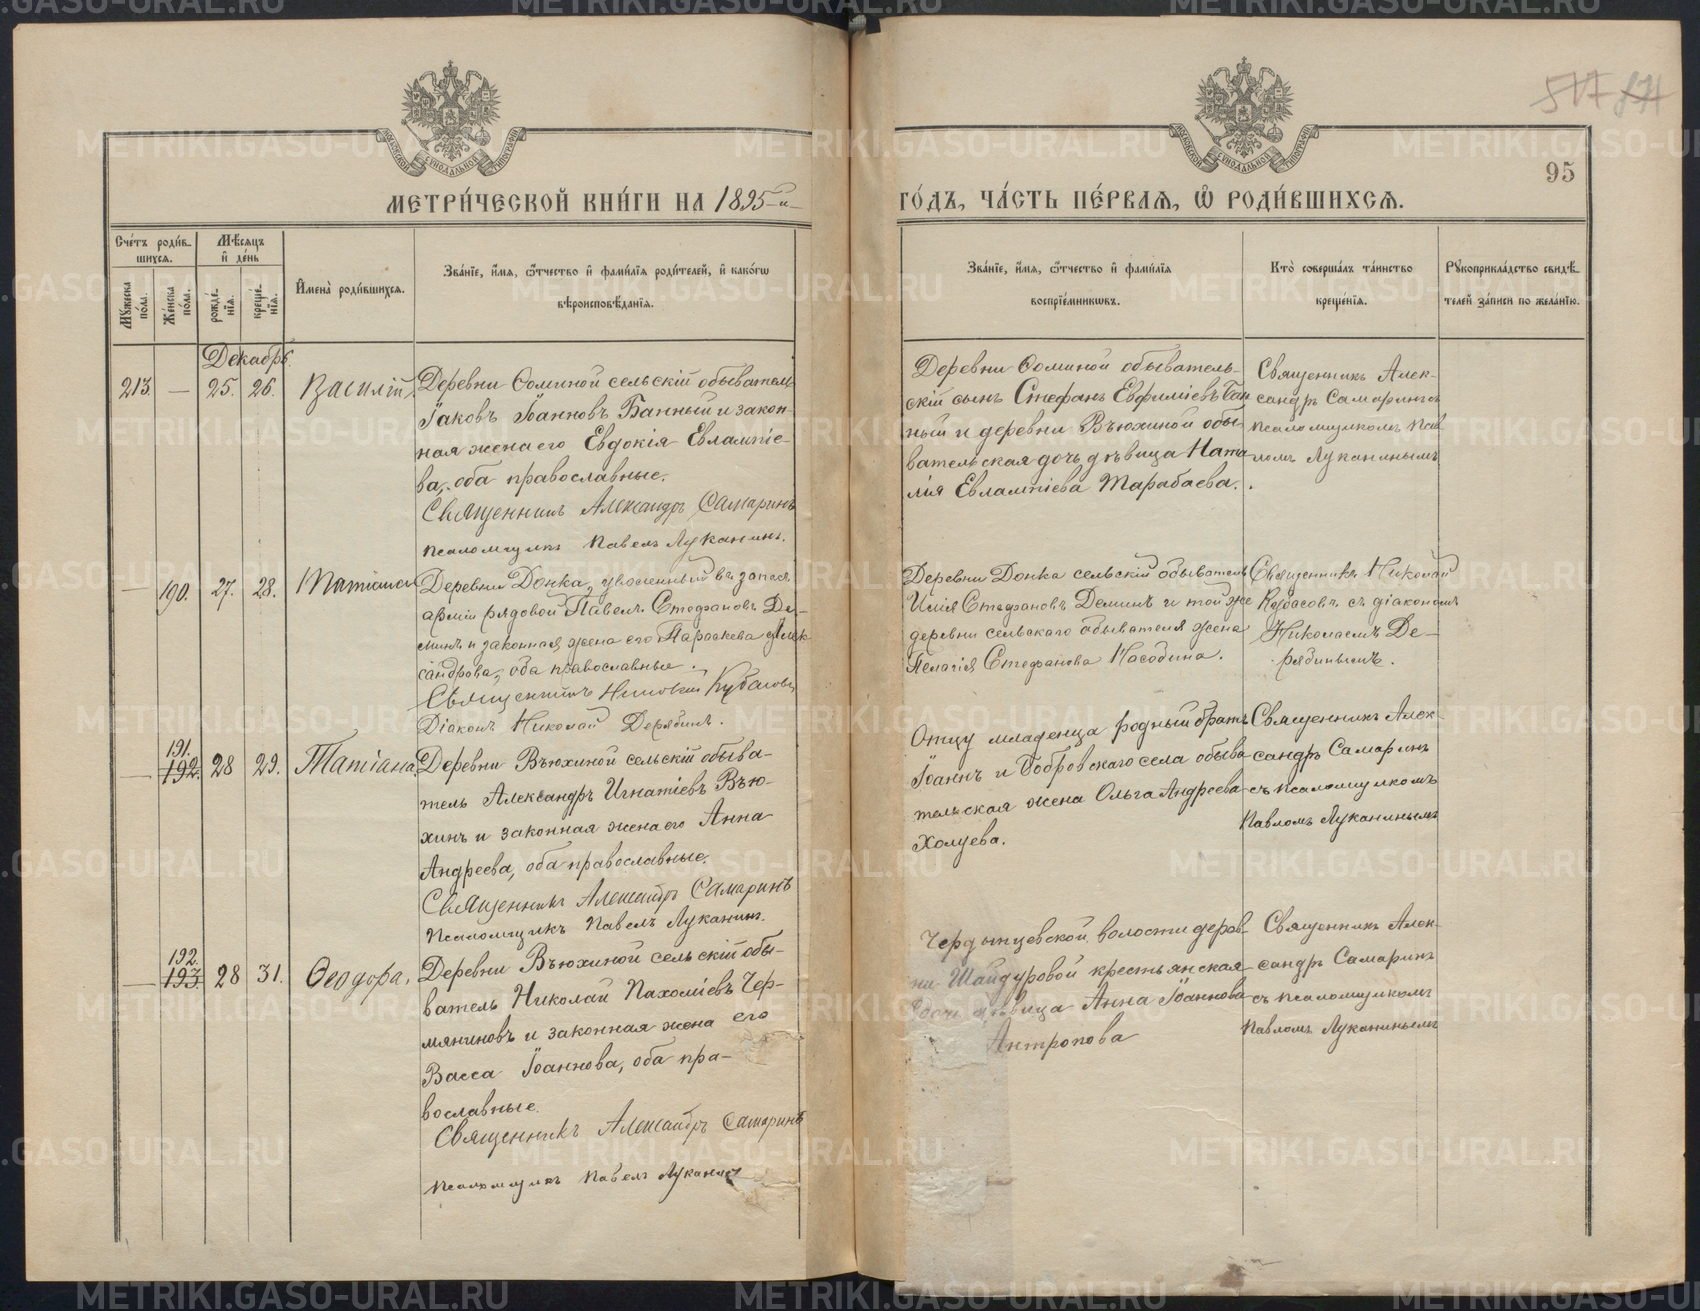 МЕТРИ́ЧЕСКОЙ КНИ́ГИ НА 1895-й
ГО́ДЪ, ЧА́СТЬ ПЕ́РВАѦ, Ѡ РОДИ́ВШИХСѦ.
95
Сче́тъ роди́в-
шихсѧ.
Мѣ́сѧцъ
и҆ де́нь
Мꙋ́жеска по́ла.
Же́нска по́ла.
рожде́нїѧ.
креще́нїѧ.
И҆мена̀ роди́вшихсѧ.
Зва́нїе, и҆́мѧ, ѻ҆́тчество и҆ фами́лїѧ роди́телей, и҆ како́гѡ
вѣроисповѣ́данїѧ.
Зва́нїе, и҆́мѧ, ѻ҆́тчество и҆ фами́лїѧ
воспрїе́мникѡвъ.
Кто̀ соверша́лъ та́инство
креще́нїѧ.
Рꙋкоприкла́дство свидѣ́-
телей за́писи по жела́нїю.
Декабрь
213. — 25. 26. Василій,
Деревни Соминой сельскій обыватель
Іаковъ Іоанновъ Банный и закон-
ная жена его Евдокія Евлампіе-
ва, оба православные.
Священникъ Александръ Самаринъ
Псаломщикъ Павелъ Луканинъ.
Деревни Соминой обыватель-
скій сынъ Стефанъ Евфиміевъ Бан
ный и деревни Вьюхиной обы-
вательская дочь дѣвица Ната
лія Евлампіева Тарабаева.
Священникъ Алек-
сандръ Самаринъ съ
псаломщикомъ Пав
ломъ Луканинымъ
— 190. 27. 28. Татіана
Деревни Донка, уволенный въ запасъ
арміи рядовой Павелъ Стефановъ Де-
минъ и законная жена его Параскева Алек
сандрова, оба православные.
Священникъ Николай Кубасовъ
Діаконъ Николай Дерябинъ.
Деревни Донка сельскій обыватель
Илія Стефановъ Деминъ и той же
деревни сельскаго обывателя жена
Пелагія Стефанова
Священникъ Николай
Кубасовъ съ діакономъ
Николаемъ Де-
рябинымъ.
191.
— 192. 28 29. Татіана
Деревни Вьюхиной сельскій обыва-
тель Александръ Игнатіевъ Вью-
хинъ и законная жена его Анна
Андреева, оба православные.
Священникъ Александръ Самаринъ
Псаломщикъ Павелъ Луканинъ.
Отцу младенца родный братъ
Іоаннъ и Бобровскаго села обыва
тельская жена Ольга Андреева
Холуева.
Священникъ Алек-
сандръ Самаринъ
съ псаломщикомъ
Павломъ Луканинымъ
192.
— 193. 28 31. Ѳеодора,
Деревни Вьюхиной сельскій обы-
ватель Николай Пахоміевъ Чер-
мяниновъ и законная жена его
Васса Іоаннова, оба пра-
вославные.
Священникъ Александръ Самаринъ
Псаломщикъ Павелъ Луканинъ
Чердынцевской волости дерев-
ни Шайдуровой крестьянская
дочь дѣвица Анна Іоаннова
Антропова
Священникъ Алек-
сандръ Самаринъ
съ псаломщикомъ
Павломъ Луканинымъ
METRIKI.GASO-URAL.RU